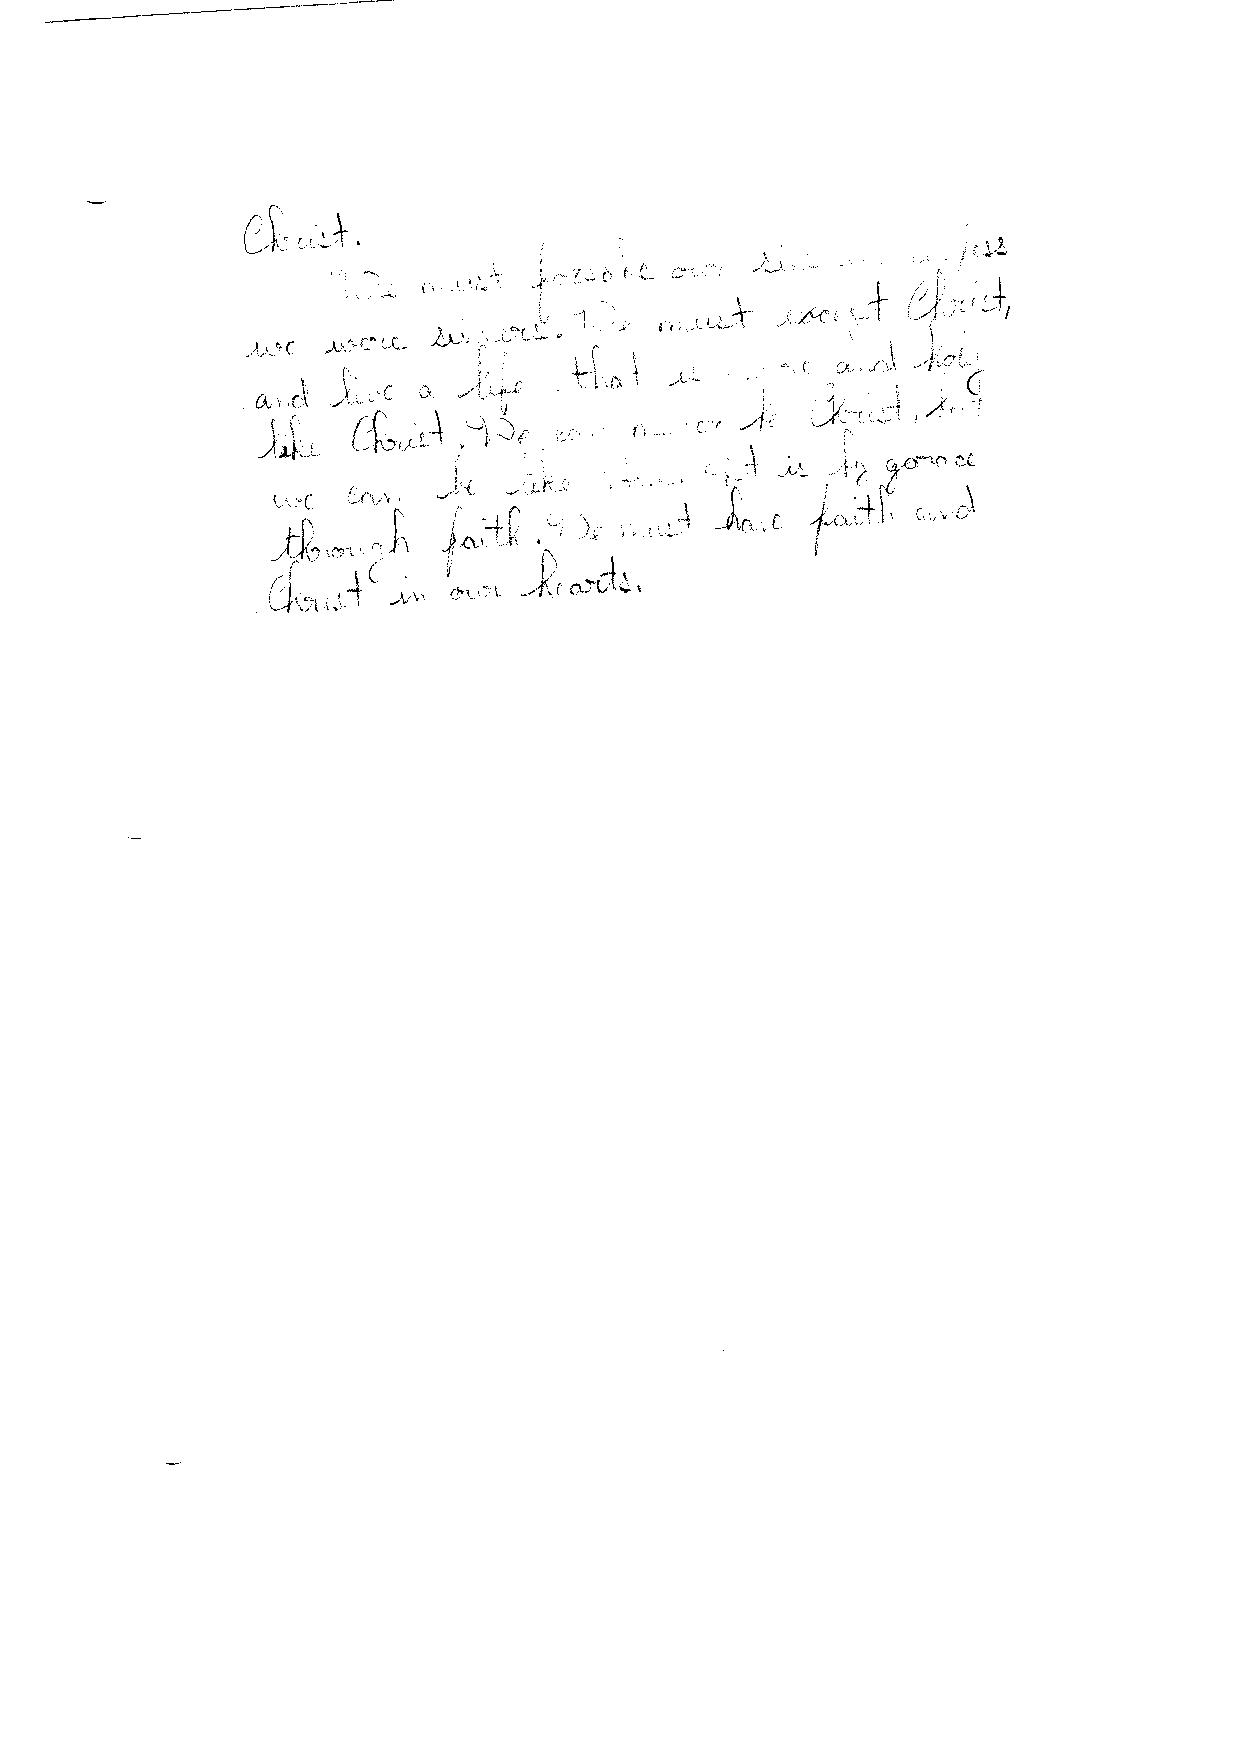 Christ.
We must forsake our sins
we were sinners. We must except Christ,
and live a life that is and holy
like Christ. We can never be Christ, but
we can be like him. It is by grace
through faith. We must have faith and
Christ in our hearts.